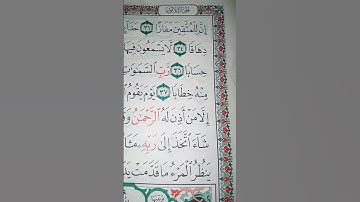 إِنَّ لِلْمُتَّقِينَ مَفَازًا ٣١
دِهَاقًا ٣٤ لَّا يَسْمَعُونَ فِيهَا
حِسَابًا ٣٦ رَّبِّ ٱلسَّمَٰوَٰتِ
مِنْهُ خِطَابًا ٣٧ يَوْمَ يَقُومُ
إِلَّا مَنْ أَذِنَ لَهُ ٱلرَّحْمَٰنُ
شَآءَ ٱتَّخَذَ إِلَىٰ رَبِّهِۦ
يَنظُرُ ٱلْمَرْءُ مَا قَدَّمَتْ